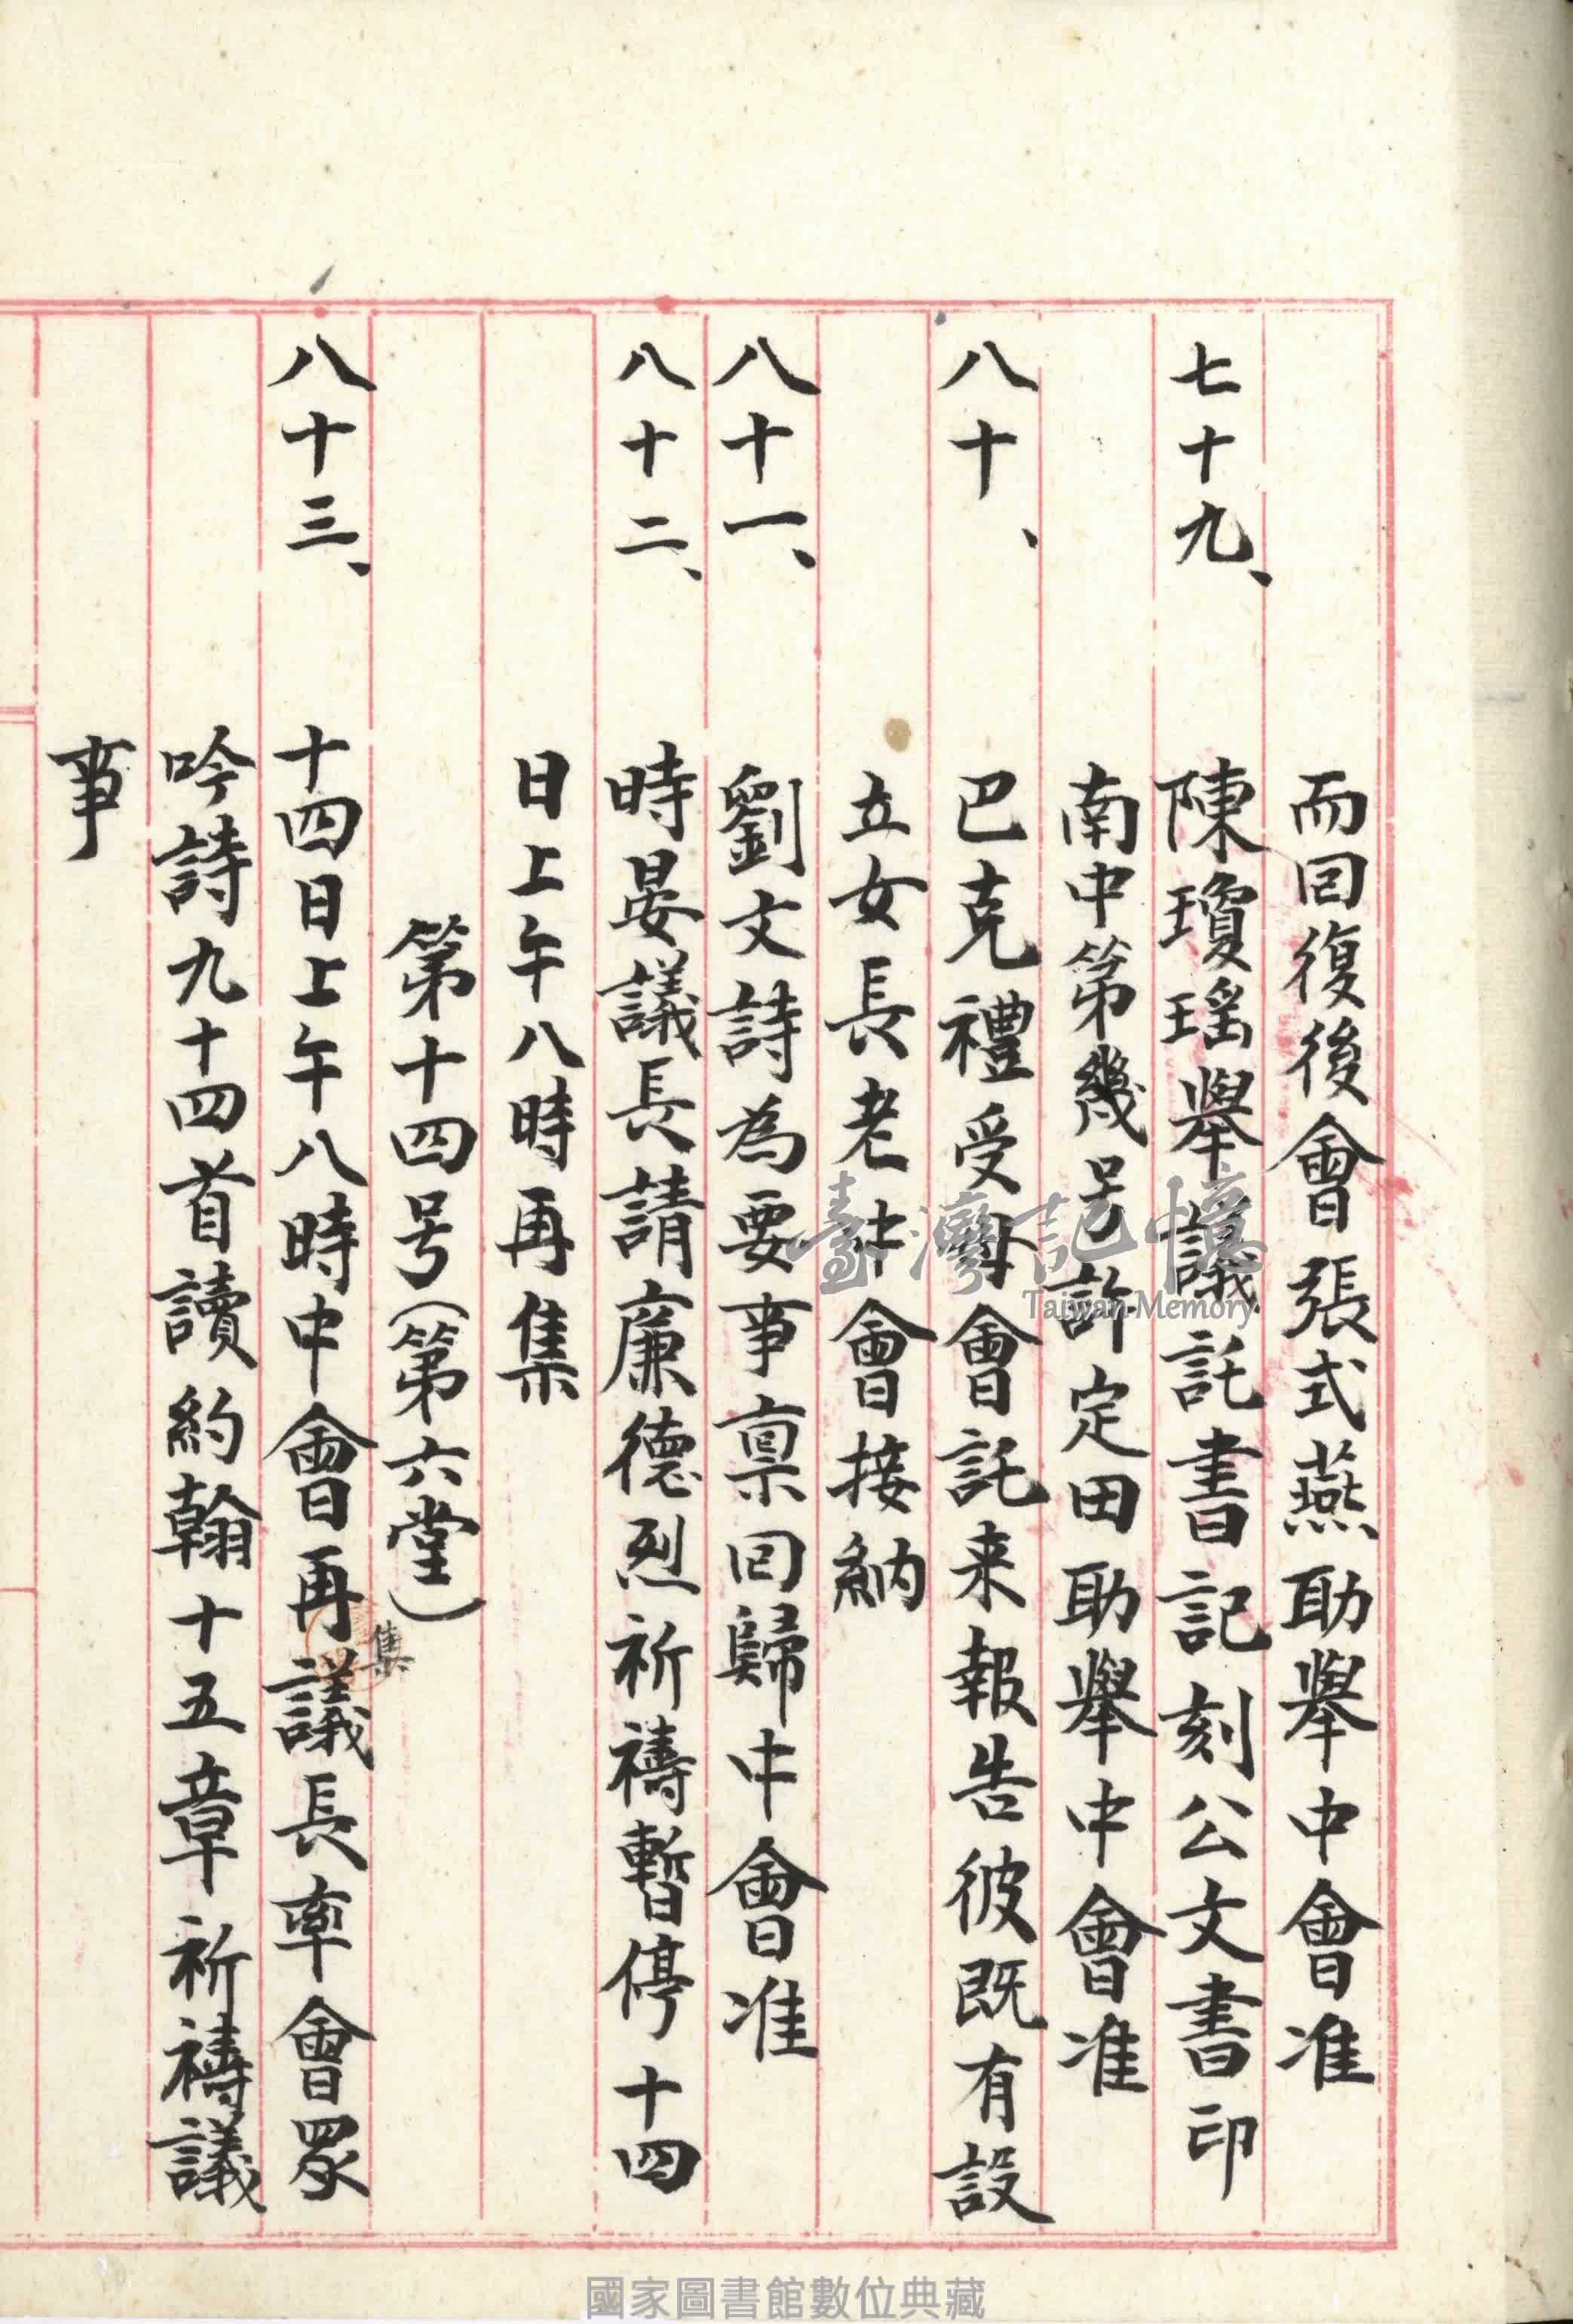 而囘復後會張式燕助擧中會准
七十九、陳瓊瑶擧議託書記刻公文書印
南中第幾号許定田助擧中會准
八十、巴克禮受母會託来報告彼既有設
立女長老中會接納
八十一、劉文詩為要事稟囘歸中會准
八十二、時晏議長請廉德烈祈禱暫停十四
日上午八時再集
第十四号(第六堂)
八十三、十四日上午八時中會再集議長率會眾
吟詩九十四首讀約翰十五章祈禱議
事
臺灣記憶
Taiwan Memory
國家圖書館數位典藏